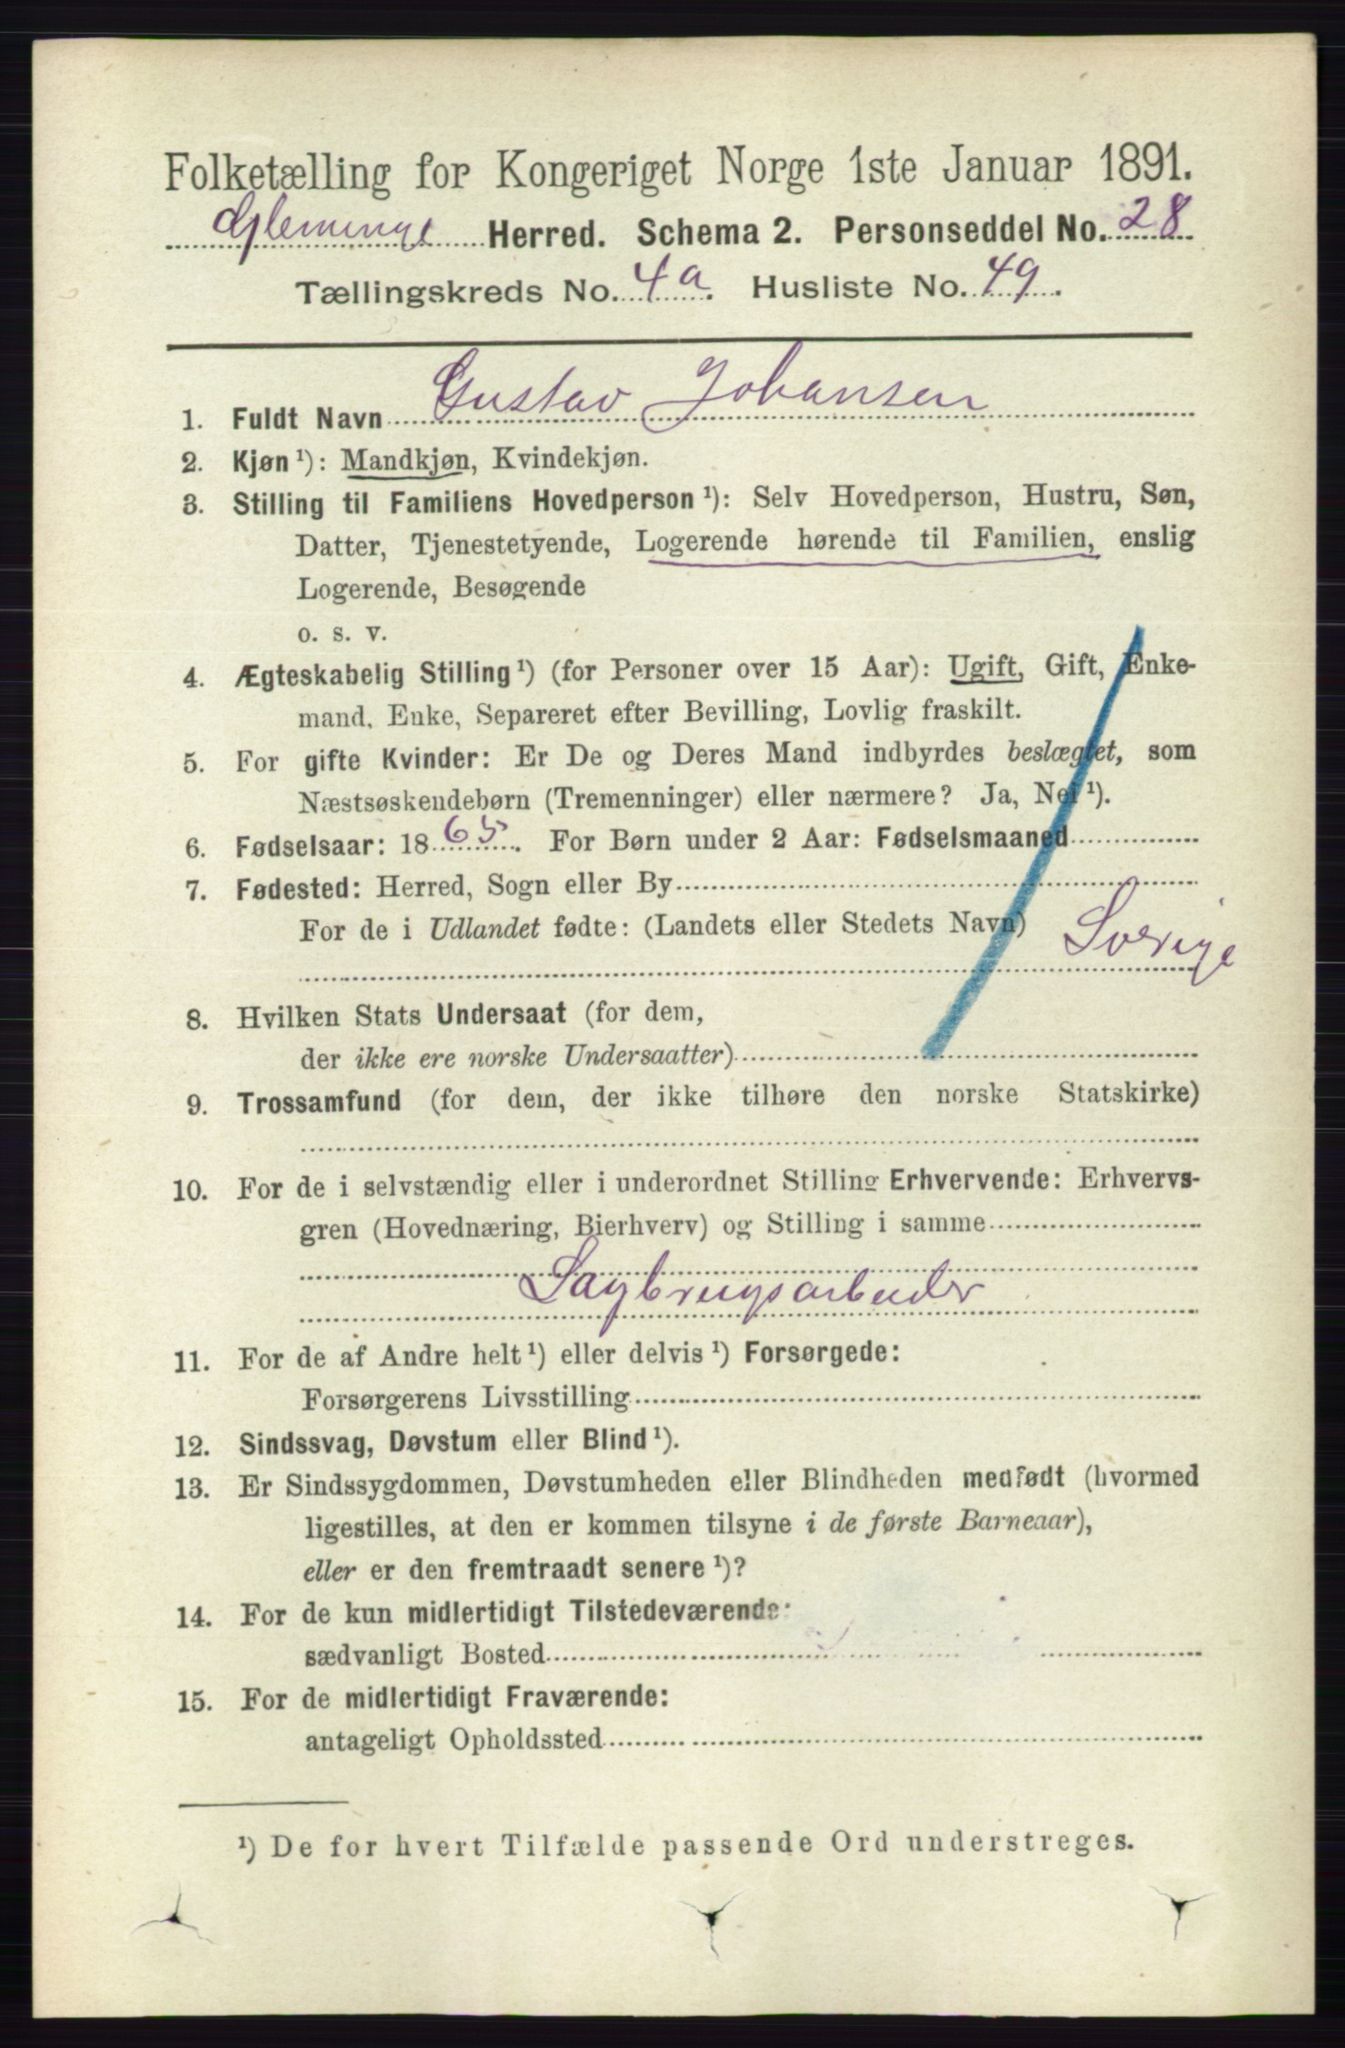 Folketælling for Kongeriget Norge 1ste Januar 1891.
Glemminge Herred. Schema 2. Personseddel No. 28
Tællingskreds No. 4a. Husliste No. 49.
1. Fuldt Navn Gustav Johansen
2. Kjøn ¹): Mandkjøn, Kvindekjøn.
3. Stilling til Familiens Hovedperson ¹): Selv Hovedperson, Hustru, Søn,
Datter, Tjenestetyende, Logerende hørende til Familien, enslig
Logerende, Besøgende
o. s. v.
4. Ægteskabelig Stilling ¹) (for Personer over 15 Aar): Ugift, Gift, Enke-
mand, Enke, Separeret efter Bevilling, Lovlig fraskilt.
5. For gifte Kvinder: Er De og Deres Mand indbyrdes beslægtet, som
Næstsøskendebørn (Tremenninger) eller nærmere? Ja, Nei ¹).
6. Fødselsaar: 1865. For Børn under 2 Aar: Fødselsmaaned
7. Fødested: Herred, Sogn eller By
For de i Udlandet fødte: (Landets eller Stedets Navn) Sverige
8. Hvilken Stats Undersaat (for dem,
der ikke ere norske Undersaatter)
9. Trossamfund (for dem, der ikke tilhøre den norske Statskirke)
10. For de i selvstændig eller i underordnet Stilling Erhvervende: Erhvervs-
gren (Hovednæring, Bierhverv) og Stilling i samme
Sagbrugsarbeider
11. For de af Andre helt ¹) eller delvis ¹) Forsørgede:
Forsørgerens Livsstilling
12. Sindssvag, Døvstum eller Blind ¹).
13. Er Sindssygdommen, Døvstumheden eller Blindheden medfødt (hvormed
ligestilles, at den er kommen tilsyne i de første Barneaar),
eller er den fremtraadt senere ¹)?
14. For de kun midlertidigt Tilstedeværende:
sædvanligt Bosted
15. For de midlertidigt Fraværende:
antageligt Opholdssted
¹) De for hvert Tilfælde passende Ord understreges.